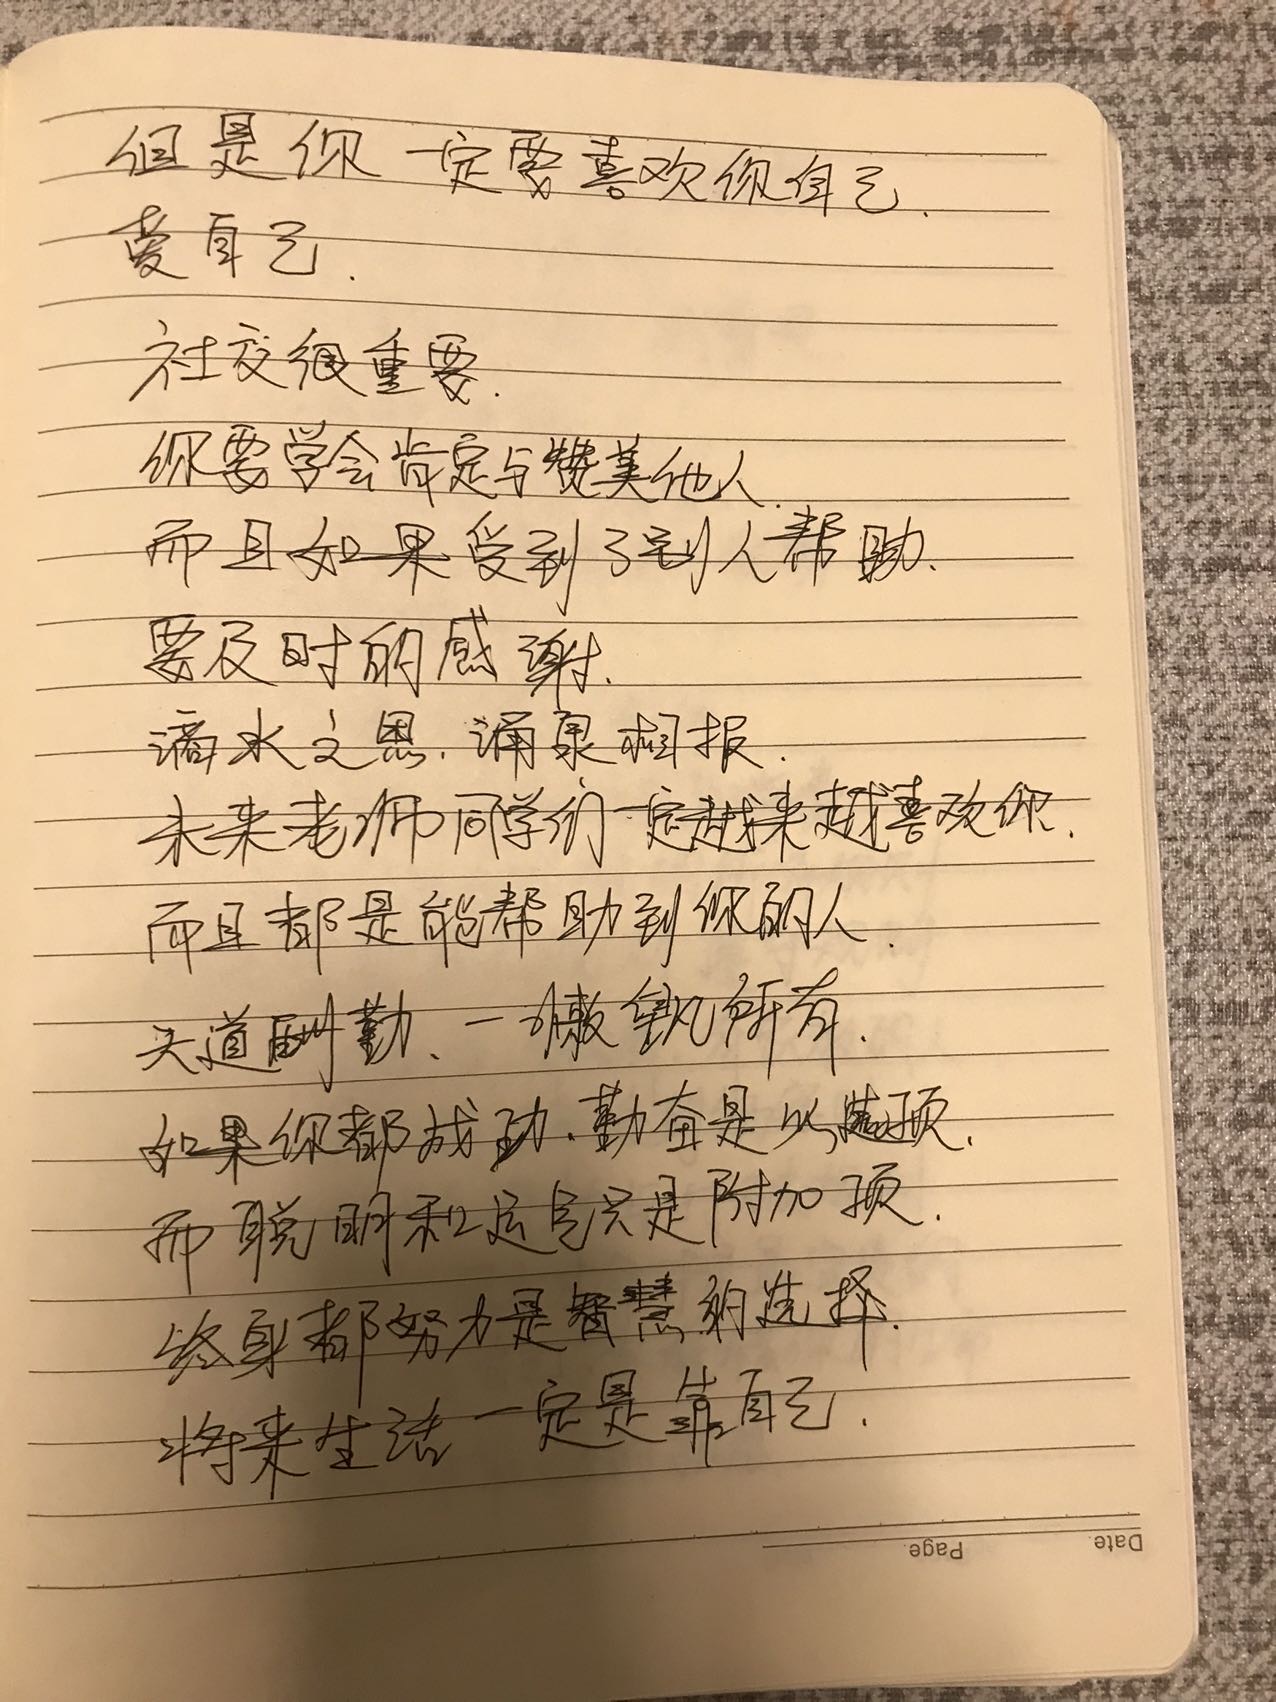 但是你一定要喜欢你自己.
爱自己.
社交很重要.
你要学会肯定与赞美他人.
而且如果受到了到人帮助.
要及时的感谢.
滴水之恩.涌泉相报.
未来老师同学们一定越来越喜欢你.
而且都是能帮助到你的人.
天道酬勤、一所有.
如果你都成功.勤奋是必选项.
而聪明和运气只是附加项.
终身都努力是智慧的选择.
将来生活一定是靠自己.
Date.
Page.